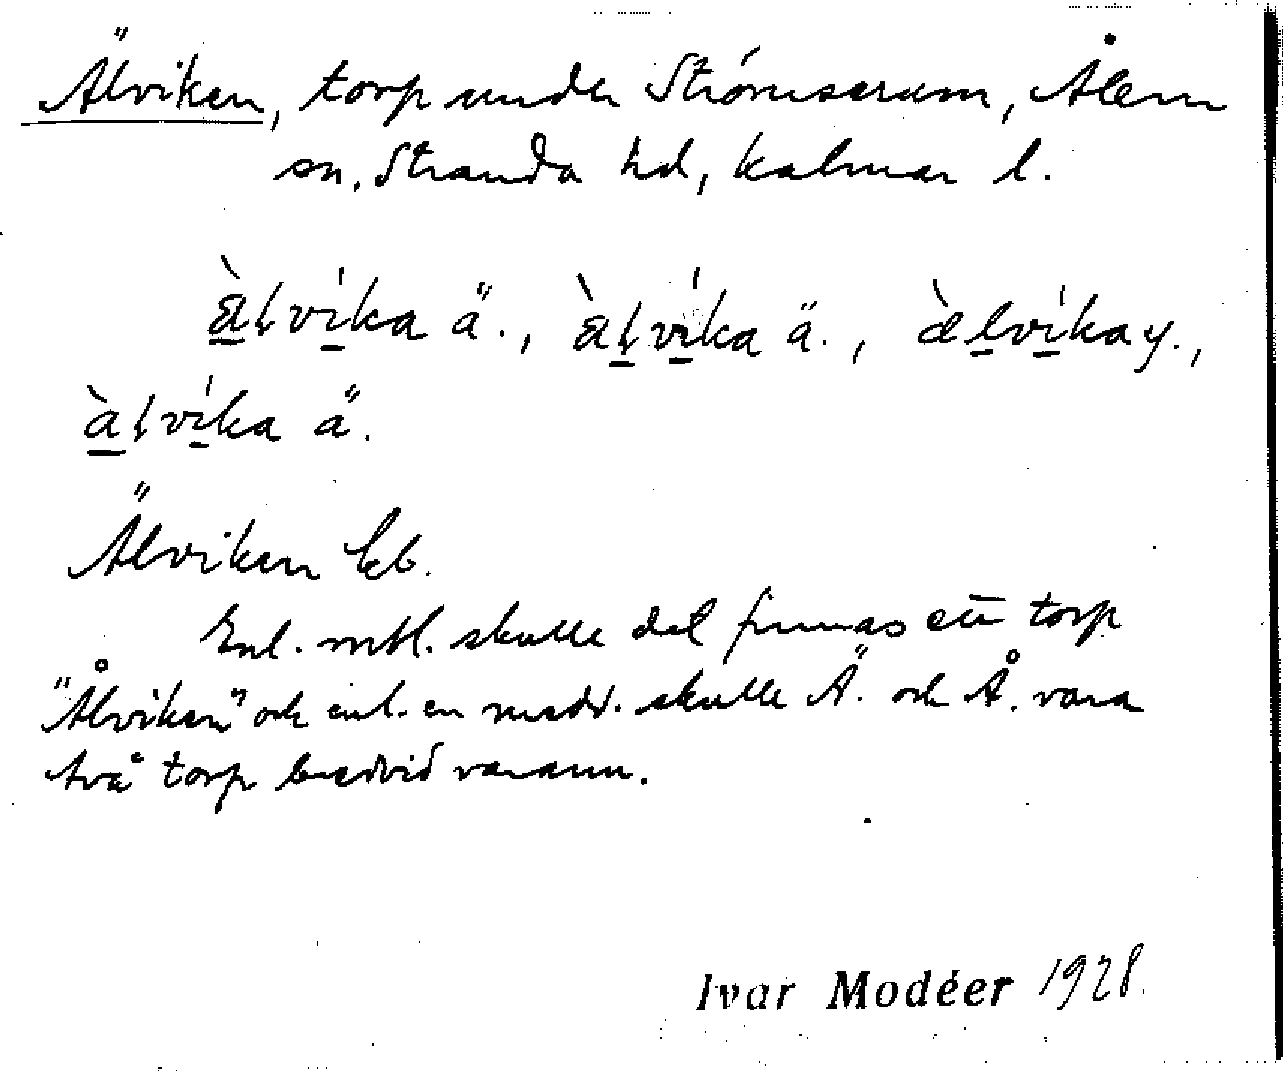 Älviken, torp under Strömserum, Ålem
sn, Stranda hd, Kalmar l.
ä̀lvíka ä., ä̀lvíka ä., æ̀lvíka y.,
àlvíka ä.
Älviken kb.
Enl. mtl. skulle det finnas ett torp
"Ålviken" och enl. en medd. skulle Ä. och Å. vara
två torp bredvid varann.
Ivar Modéer 1928.